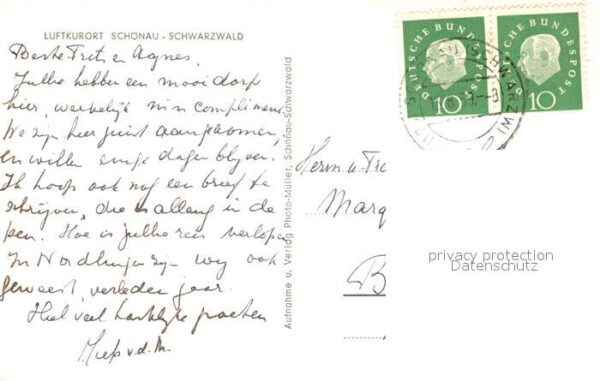 LUFTKURORT SCHÖNAU - SCHWARZWALD
Beste Frits en Agnes,
Jullie hebben een mooi dorp
hier, werkelijk m'n compliment
We zijn hier juist aangekomen,
en willen enige dagen blijven.
Ik hoop ook nog een brief te
schrijven, die is allang in de
pen. Hoe is jullie reis verlopen
In Nördlingen zijn wij ook
geweest, verleden jaar.
Heel veel hartelijke groeten
Miep v.d.M.
Aufnahme u. Verlag Photo-Müller, Schönau-Schwarzwald
Herrn u. Fr
Marq
B
DEUTSCHE BUNDESPOST
10
DEUTSCHE BUNDESPOST
10
privacy protection
Datenschutz